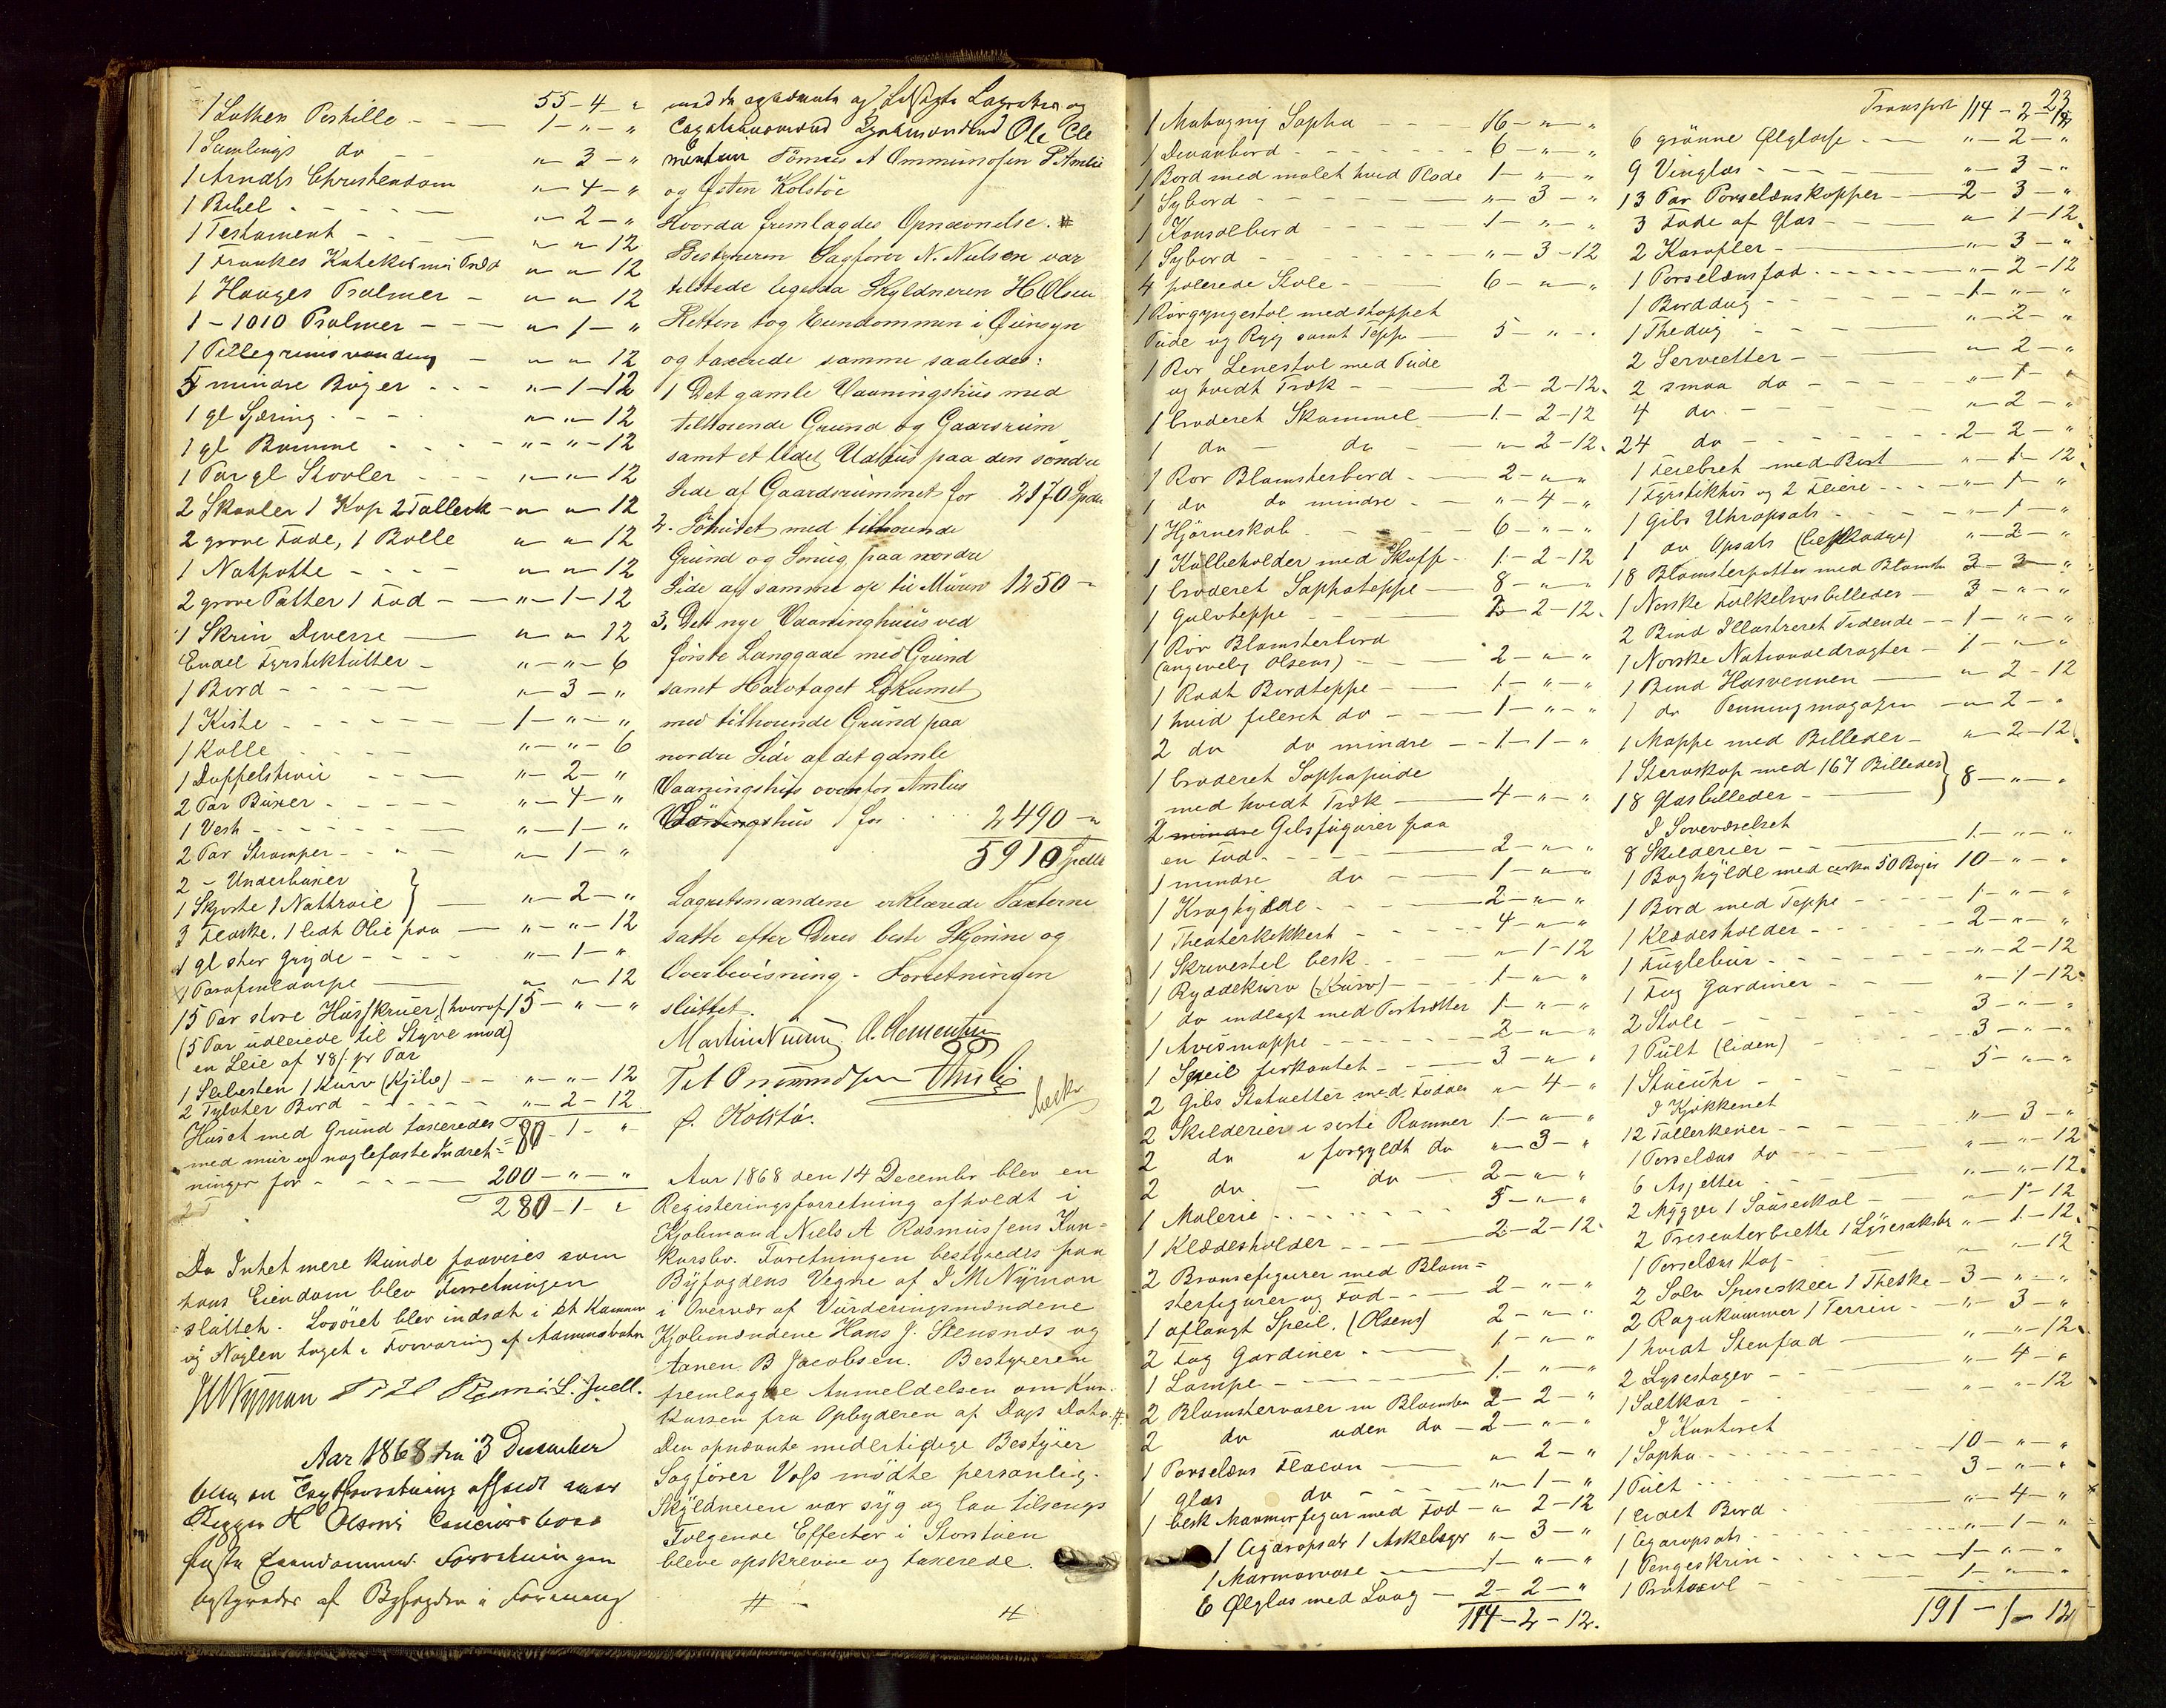 1 Luthers Postille - - - 55-4-"
1-"-"
1 Samlings do - - "-3-"
1 Arndts Christendom "-4-"
1 Bibel - - - - "-2-"
1 Testament - - - "-"-12
1 Frankes Katekismi Præd "-"-12
1 Hauges Psalmer - "-"-12
1-1010 Psalmer - - - "-1-"
1 Pillegrimsvanding - "-"-12
5 mindre Bøger - - - "-1-12
1 gl Særing - - - "-"-12
1 gl Bomme - - - "-"-12
1 Par gl Støvler - - - "-"-12
2 Skaaler 1 Kop 2 Tallerk - "-"-12
2 grove Fade, 1 Bolle "-"-12
1 Natpotte - - - - "-"-12
2 grove Potter 1 Fad - - "-1-12
1 Skrin Diverse "-"-12
Endel Fyrstiktutter - "-"-6
1 Bord - - - - - "-3-"
1 Kiste - - - - - - 1-"-"
1 Kolle "-"-6
1 Doppelstroie - - - "-2-"
2 Par Buxer - - - - - "-4-"
1 Vest - - - - - - "-1-"
2 Par Strømper - - - - "-1-"
2 - Underbuxer
1 Skjorte 1 Nattroie } "-2-"
3 Flaske, 1 lidt Olie paa - "-"-12
1 gl stor Gryde - - - - "-1-"
1 Parafinlampe "-"-12
15 Par store Husskruer, (hvoraf 15-"-"
(5 Par udleiede til Styve mod)
en Leie af 48 ß pr Par
1 Slibesten 1 Kurv (Kjibe) - - "-"-12
2 Tylvter Bord - - - - - "-2-12
80-1-"
Huset med Grund taxeredes
med mur og naglefaste Indret=
ninger for - - - - 200-"-"
280-1-"
Da Intet mere kunde paavises som
hans Eiendom blev Forretningen
sluttet. Løsøret blev indsat i et Kammer
og Nøglen taget i Forvaring af
JMNyman L. Juell.
Aar 1868 den 3 December
blev en Taxtforretning afholdt over
H Olsens Concursboes
faste Eiendomme. Forretningen
bestyredes af Byfogden i Forening
med de opnævnte af Lagretten og
Ole Cle
mentsen Tønnes A Ommundsen
og Østen Kolstøe
Hvorda fremlagdes Opnævnelse. #
Bestyreren Sagfører N. Nielsen var
tilstede ligesaa Skyldneren H Olsen
Retten tog Eiendommen i Øiensyn
og taxerede samme saaledes:
1 Det gamle Vaaningshus med
tilhørende Grund og Gaardsrum
samt et lidet Udhus paa den søndre
Side af Gaardsrummet for 2170 Spdlr
2. Søhuset med tilhørende
Grund og Smug paa nordre
Side af samme op til Muren 1250 -"
3. Det nye Vaaninghuus ved
første Langgade med Grund
samt Halvtaget Lokumet
med tilhørende Grund paa
nordre Side af det gamle
Vaaningshus ovenfor
Vaaningshus 1 for . . . . 2490 -"
5910 Spdlr
Lagretsmændene erklærede Taxterne
satte efter Deres beste Skjønne og
Overbevisning. - Forretningen
sluttet.
O. Clementsen
T A Ommundsen
Ø. Kolstø.
Aar 1868 den 14 December blev en
Registeringsforretning afholdt i
Kjøbmand Niels A Rasmussens Kon=
kursbo. Forretningen bestyredes paa
Byfogdens Vegne af J M Nyman
i Overvær af Vurderingsmændene
Kjøbmændene Hans J. Stensnæs og
B Jacobsen. Bestyreren
fremlagde Anmeldelsen om Kon-
kursen fra Opbyderen af Dags Dato. #
Den opnævnte midlertidige Bestyrer
Sagfører Voss mødte personlig.
Skyldneren var syg og laa tilsengs
Følgende Effecter i Storstuen
bleve opskrevne og taxerede.
# - #
1 Mahogny Sopha - - - 16-"-"
1 Divanbord - - - - - - 6-"-"
1 Bord med malet hvid Plade 1-"-"
1 Sybord - - - - - "-3-"
1 Konsolbord - - - - 1-"-"
1 Sybord - - - - - "-3-12
4 polerede Stole - - - 6-"-"
1 Rørgyngestol med stoppet
Pude og Ryg samt Tepp - 5-"-"
1 Rør Lenestol med Pude
og hvidt Træk - - 2-2-12.
1 broderet Skammel 1-2-12
1 do - do - "-2-12.
1 Rør Blomsterbord - 2-"-"
1 do do mindre - "-4-"
1 Hjørneskab - - - 6-"-"
1 Kulbeholder med Skuffe - 1-2-12
1 broderet Sophateppe - 8-"-"
1 Gulvteppe - 2-2-12.
1 Rør Blomsterbord
(angivelig Olsens) - - 2-"-"
1 Rødt Bordteppe - - 1-"-"
1 hvid fileret do - - 1-"-"
2 do do mindre - - 1-1-"
1 broderet Sophapude
med hvidt Træk - 4-"-"
2 Gibsfigurer paa
en Fod - - - - 2-"-"
1 mindre do - - 1-"-"
1 Kroghylde - - - 2-"-"
1 Theaterkikkert - - - - 4-"-"
1 Skrivestel besk. - - - "-1-12
1 Ryddekurv (Kurv) - - - 1-"-"
1 do indlagt med Portrætter 1-"-"
1 Avismappe - - - - - 2-"-"
1 Speil firkantet - - 3-"-"
2 Gibs Statuetter med Fødder "-4-"
2 Skilderier i sorte Rammer 1-"-"
2 do i forgyldt do "-3-"
2 do - do - 2-"-"
1 Malerie - - - - - - 5-"-"
1 Klædesholder - - - 2-2-12.
2 Bronsefigurer med Blom=
sterfigurer og Fod - - - 2-"-"
1 aflangt Speil. (Olsens) 2-"-"
2 Fag Gardiner - - - 1-"-"
1 Lampe - - - - - 1-"-"
2 Blomstervaser m Blomster 2-2-"
2 do uden do - 2-"-"
1 Porselæns Flacon "-2-"
1 Glas do - - - - - "-1-"
1 besk Marmorfigur med Fod - "-2-12
1 Cigaropsats 1 Askebæger "-3-"
1 Marmorvase 1-"-"
6 Ølglas med Laag - 2-2-"
114-2-12.
23
Transport 114-2-12
6 grønne Ølglasse - - "-2-"
9 Vinglas - - - - "-3-"
13 Par Porselænskopper 2-3-"
3 Fade af Glas - "-1-12
2 Karafler - "-3-"
1 Porselænsfad - - - - - - "-2-12
1 Borddug - - - - - - 1-"-"
1 Thedug - - - - - "-2-"
2 Servietter - - "-2-"
2 smaa do - - - "-1-"
4 do - - - "-2-"
24 do - - - - - - 2-2-"
1 Feiebret med Børst "-1-12
1 Fyrstikhus og 2 Feiere - - - "-1-"
1 Gibs Uhropsats - - - "-1-"
1 do Opsats (beskadiget) "-2-"
18 Blomsterpotter med Blomster 3-3-"
1 Norske Folkelivsbilleder - 3-"-"
2 Bind Illustreret Tidende - - 1-"-"
1 Norske Nationaldragter - 1-"-"
1 Bind Husvennen "-2-12
1 do Penningmagasin - "-2-"
1 Mappe med Billeder - "-2-12
1 Steroskop med 167 Billeder
18 Glasbilleder - } 8-"-"
I Soveværelset
8 Skilderier - 1-"-"
1 Boghylde med cirka 50 Bøger 10-"-"
1 Bord med Teppe - - - - - 1-"-"
1 Klædesholder - - - - - 2-"-"
1 Fuglebur - - - - - "-2-12
1 Fag Gardiner - - - "-1-12
2 Stole - - - - - 3-"-"
1 Pult (liden) - - - - 3-"-"
1 Stueuhr - - - - - - 5-"-"
I Kjøkkenet
12 Tallerkener - - "-3-"
1 Porselæns do - - - - "-"-12
6 Asjetter - - - "-"-12.
2 Mugger 1 Sauseskaal - - "-1-12
2 Presenterbrette 1 Lysesaks "-1-12.
1 Porselæns Kop - "-"-12
2 Sølv Spiseskeer 1 Theske - 3-"-"
2 Ragukummer 1 Terrin - - "-3-"
1 hvidt Stenfad "-"-12
2 Lysestager - - "-4-"
1 Saltkar - "-"-12
I Kontoret
1 Sopha - - - - - - - 10-"-"
1 Pult - - - - 3-"-"
1 lidet Bord - "-4-"
1 Cigaropsats - - - - - - "-1-"
1 Pengeskrin - - - - - - 1-"-"
1 Protocol - - - - 1-"-"
191-1-12